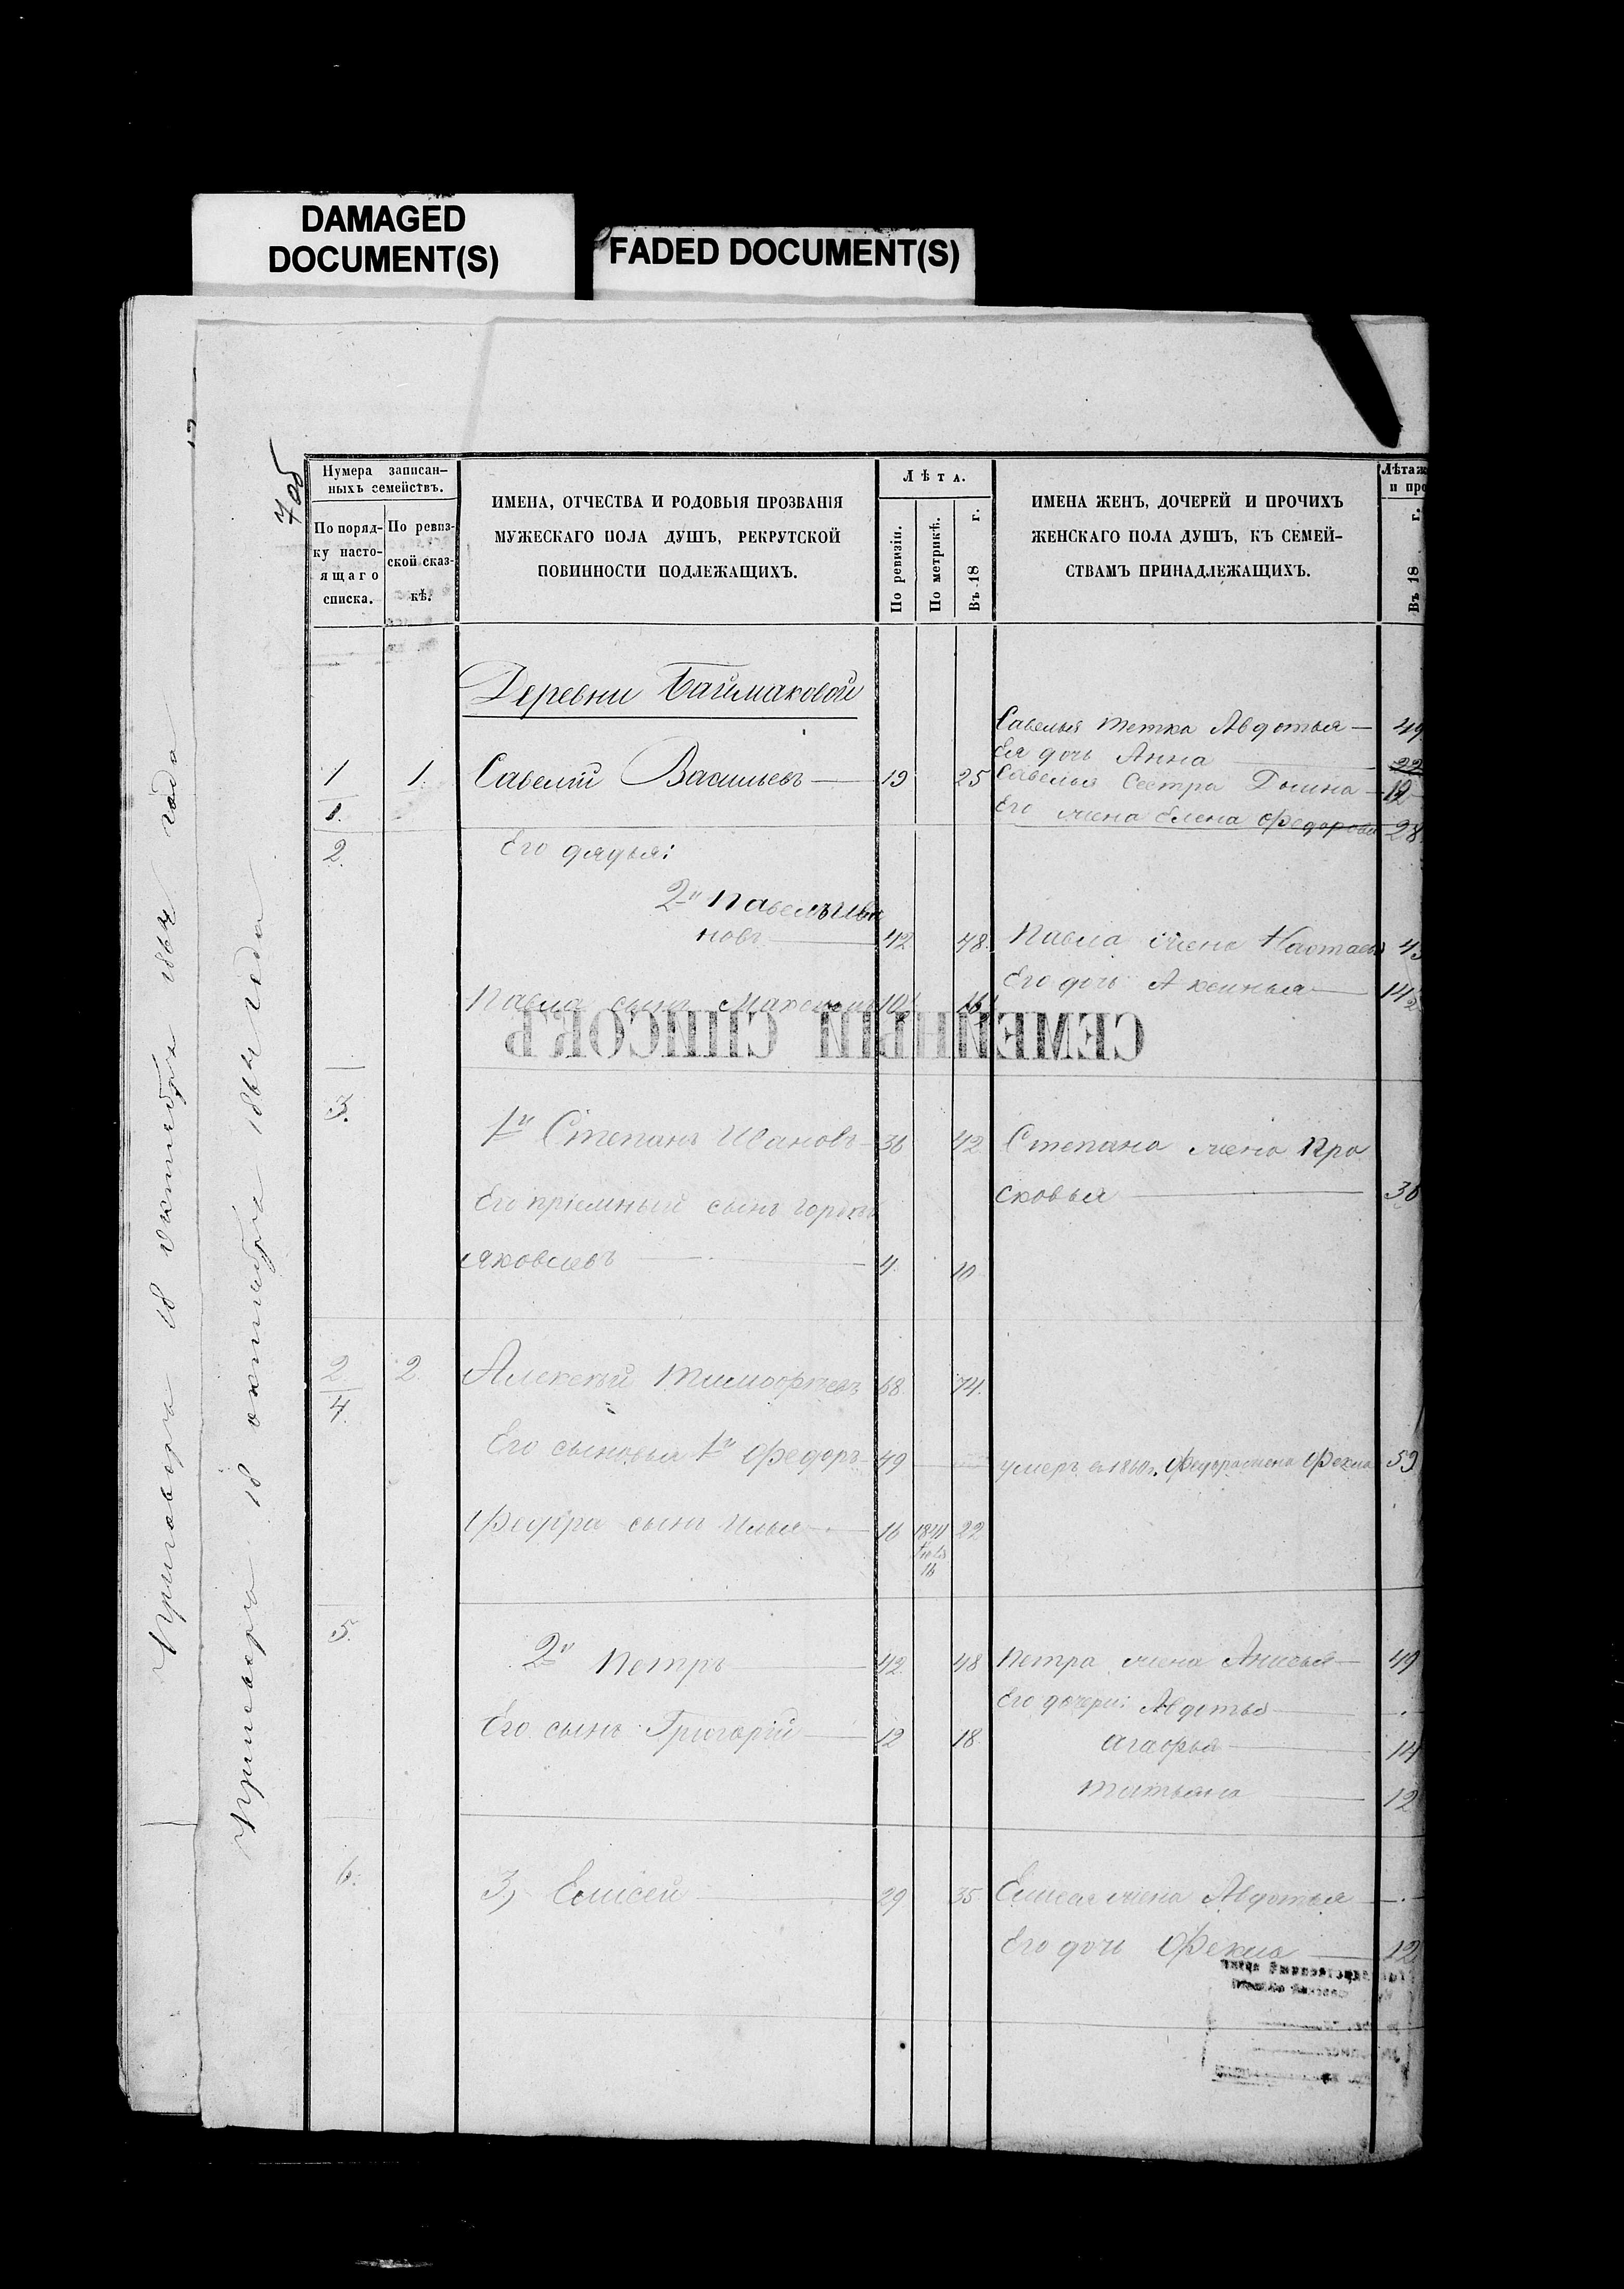 DAMAGED
DOCUMENT(S)
FADED DOCUMENT(S)
7об
Нумера записан-
ныхъ семействъ.
По поряд-
ку насто-
ящаго
списка.
По ревиз-
ской сказ-
кѣ.
ИМЕНА, ОТЧЕСТВА И РОДОВЫЯ ПРОЗВАНІЯ
МУЖЕСКАГО ПОЛА ДУШЪ, РЕКРУТСКОЙ
ПОВИННОСТИ ПОДЛЕЖАЩИХЪ.
Лѣта.
По ревизіи.
По метрикѣ.
Въ 18 г.
ИМЕНА ЖЕНЪ, ДОЧЕРЕЙ И ПРОЧИХЪ
ЖЕНСКАГО ПОЛА ДУШЪ, КЪ СЕМЕЙ-
СТВАМЪ ПРИНАДЛЕЖАЩИХЪ.
Лѣта ж
и про
Въ 18 г.
Деревни Баймаковой
Савелья тетка Авдотья — 49
Ея дочь Анна — 22
1 1. Савелій Васильевъ — 19 25 Савелья Сестра — 12
1. Его жена Елена Федорова 28
2. Его дядья:
2й Павелъ Ива
новъ — 42 48. Павла жена Настасья
Его дочь Аксинья — 14
Павла сынъ Максимъ 10 16
СЕМЕЙНЫЙ СПИСОКЪ
3.
1й Степанъ Ивановъ — 36 42 Степана жена Пра
сковья — 36
Его пріемный сынъ
Яковлевъ — 4. 10
2 2. Алексѣй Тимофѣевъ 68. 74.
4.
Его сыновья 1й Федоръ — 49 умеръ въ 1860 г. Федора жена Фекла 53
Федора сынъ Илья — 16 1841 22
16
5.
2й Петръ — 42 48 Петра жена Анисья — 49
Его дочери: Авдотья —
Его сынъ Григорій — 12 18. Агафья — 14
Татьяна — 12
6. 3, Елисей — 29 35 Елисея жена Авдотья —
Его дочь Фекла — 12
Приговоръ 18 октября 1864 года
Приговоръ 18 октября 1864 года